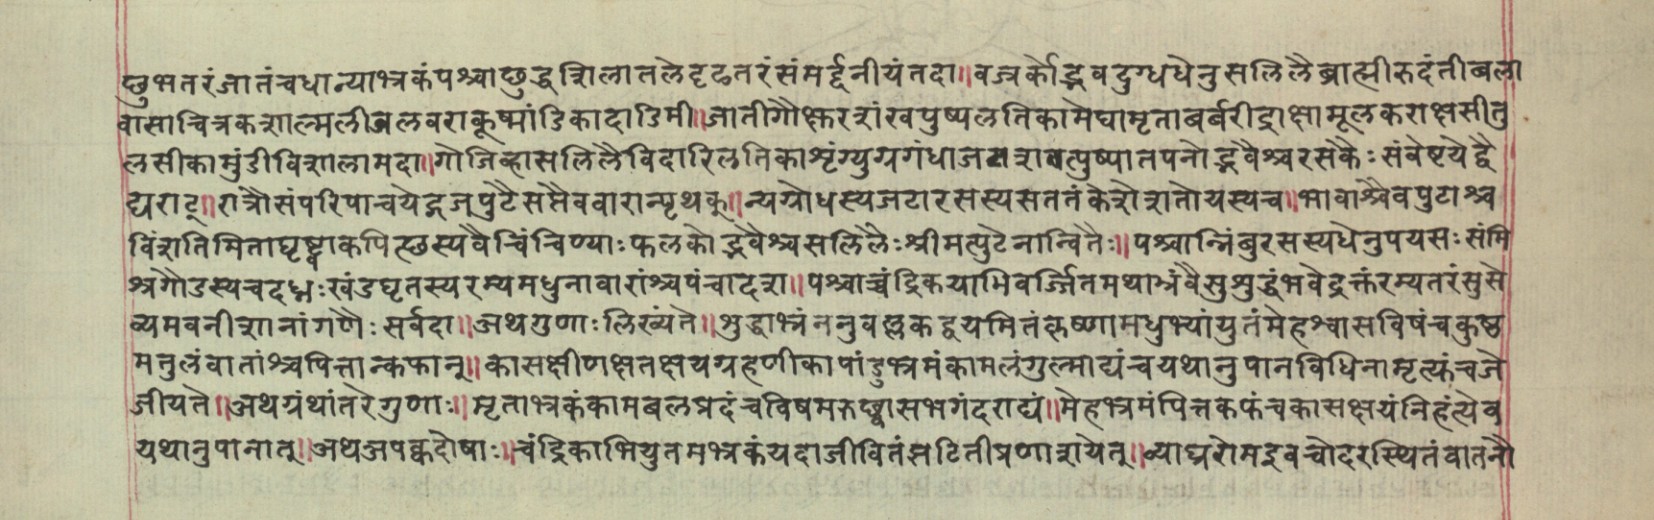 छुभतरंजातंचधान्याभ्रकंपश्चाछुद्धशिलातलेदृढतरंसंमर्द्दनीयंतदा॥वज्रर्कोद्भवदुग्धधेनुसलिलैब्राह्मीरुदंतीबला
वासाचित्रकशाल्मलीजलवराकूष्मांडिकादाडिमी॥जातीगौक्षरशंखपुष्पलतिकामेघामृताबर्बरीद्राक्षामूलकराक्षसीतु
लसीकामुंडीविशालामदा॥गोजिव्हासलिलैविदारिलतिकाशृंग्युग्रगंधाज
द्यराट्॥रात्रौसंपरिपाचयेद्गजपुटैसप्तैववारान्पृथक्॥न्यग्रोधस्यजटारसस्यसततंकेशेशतोयस्यच॥भावाश्चैवपुटाश्च
विंशतिमिताघृष्ट्वाकपित्छस्यवैचिंचिण्याःफलकोद्भवैश्चसलिलैःश्रीमत्पुटेनान्वितैः॥पश्चान्निंबुरसस्यधेनुपयसःसंमि
श्रगौडस्यचदध्नःखंडघृतस्यरम्यमधुनावारांश्चपंचादश॥पश्चाच्चंद्रिकयाभिवर्ज्जितमथाभ्रंवैसुशुद्धंभवेद्रक्तंरम्यतरंसुसे
व्यमवनीशानांगणैःसर्वदा॥अथगुणाःलिख्यंते॥शुद्धाभ्रंननुवल्लकद्वयमितंकृष्णामधुभ्यांयुतंमेहश्वासविषंचकुष्ठ
मतुलंवातांश्चपित्तान्कफान्॥कासक्षीणक्षतक्षयग्रहणीकापांडुभ्रमंकामलंगुल्माद्यंचयथानुपानविधिनामृत्युंचजे
जीयते॥अथग्रंथांतरेगुणाः॥मृताभ्रकंकामबलप्रदंचविषमरुछ्वासभगंदराद्यं॥मेहभ्रमंपित्तकफंचकासक्षयंनिहंत्येव
यथानुपानात्॥अथअपक्वदोषाः॥चंद्रिकाभियुतमभ्रकंयदाजीवितंझटितीप्रणाशयेत्॥व्याघ्ररोमइवचोदरस्थितंवातनौ